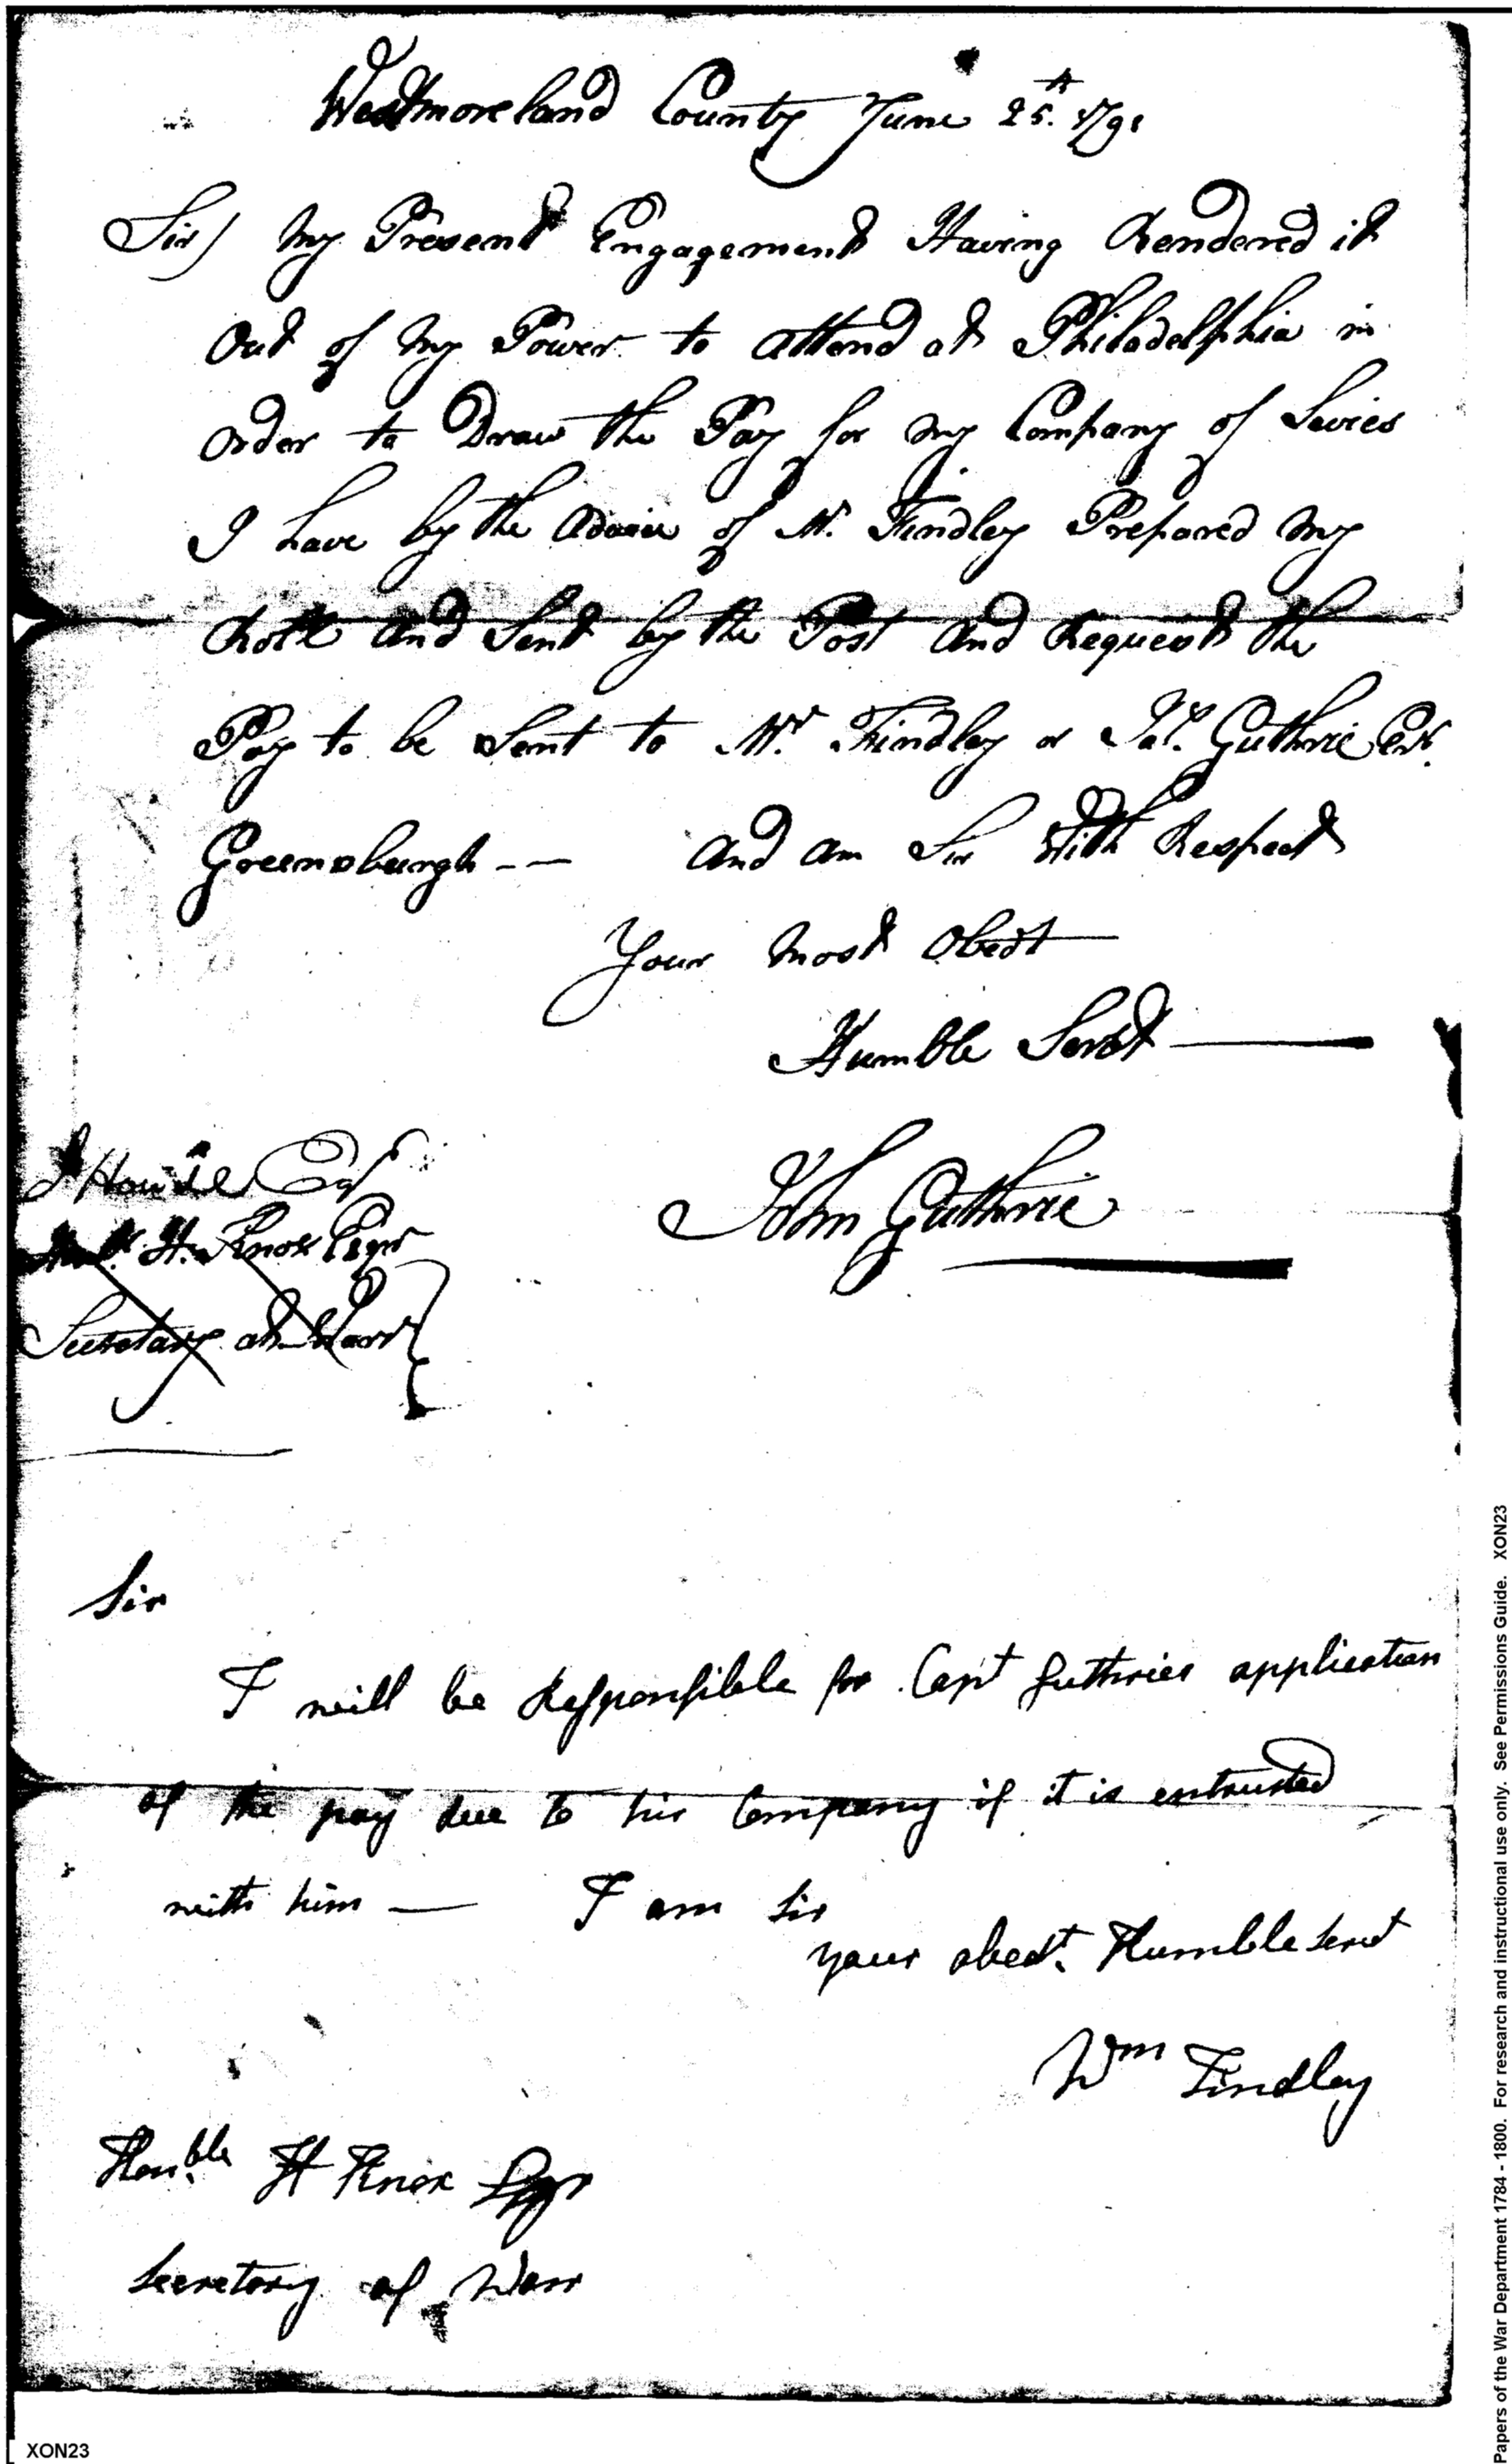 Westmoreland County June 25.th 1791
Sir) My Present Engagement Having Rendered it
Out of My Power to attend at Philadelphia in
order to Draw the Pay for my Company of Levies
I have by the advice of Mr. Findley Prepared My
Roll and Sent by the Post and Request the
Pay to be Sent to Mr. Findley or Jas. Guthrie Esqr.
Greensburgh -- and am Sir With Respect
Your Most Obedt
Humble Servt
John Guthrie
J Howell Esqr
H. Knox Esqr
Secretary at Warr
Sir
I will be Responsible for Capt Guthries application
of the pay due to his Company if it is entrusted
with him — I am Sir
your obedt. Humble Servt
Wm Findley
Hon.ble H Knox Esqr
Secretary of Warr
XON23
Papers of the War Department 1784 - 1800. For research and instructional use only. See Permissions Guide. XON23